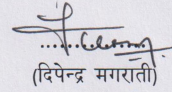 (दिपेन्द्र मगराती)